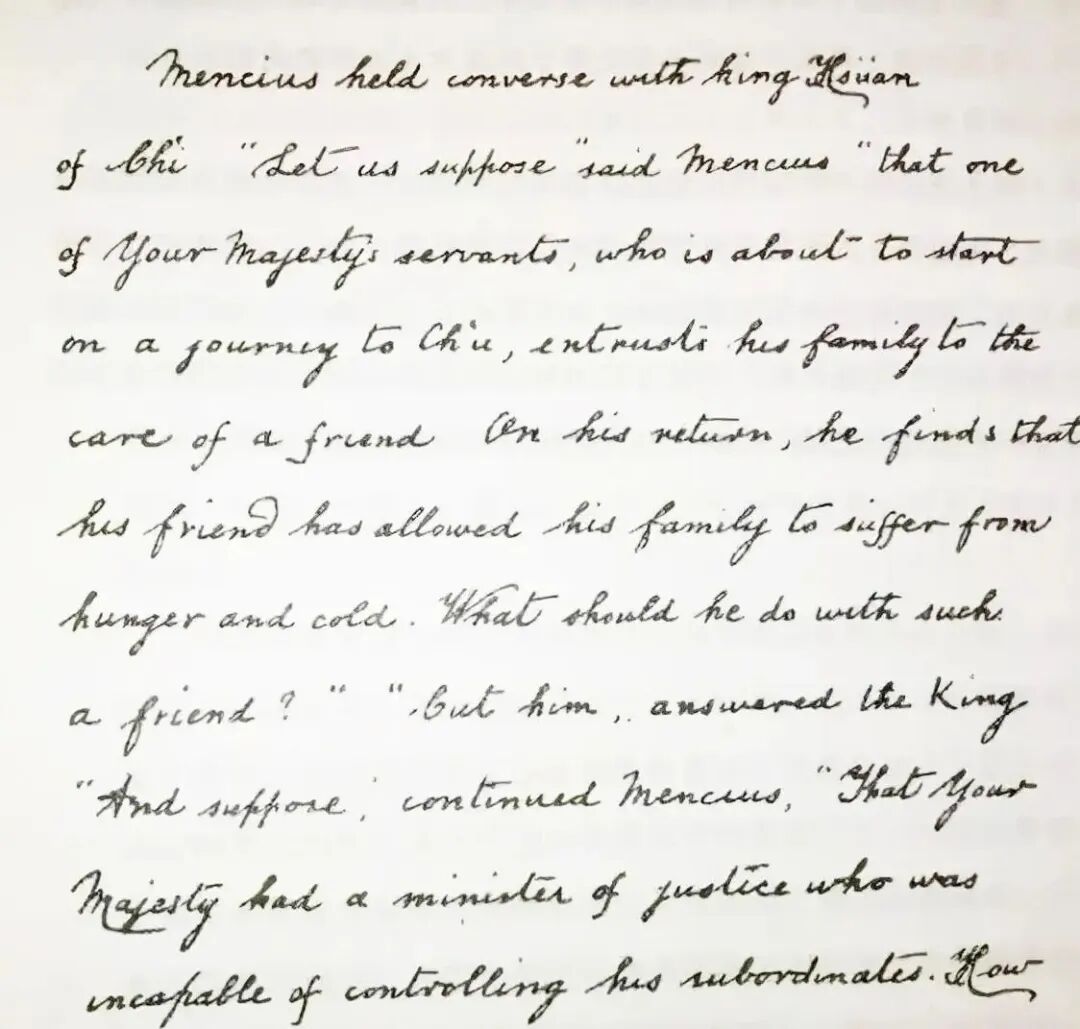 Mencius held converse with king Hsüan
of Chi "Let us suppose" said Mencius "that one
of Your Majesty's servants, who is about to start
on a journey to Ch'u, entrusts his family to the
care of a friend On his return, he finds that
his friend has allowed his family to suffer from
hunger and cold. What should he do with such
a friend?" "Cut him, answered the King
"And suppose, continued Mencius, "That Your
Majesty had a minister of justice who was
incapable of controlling his subordinates. How